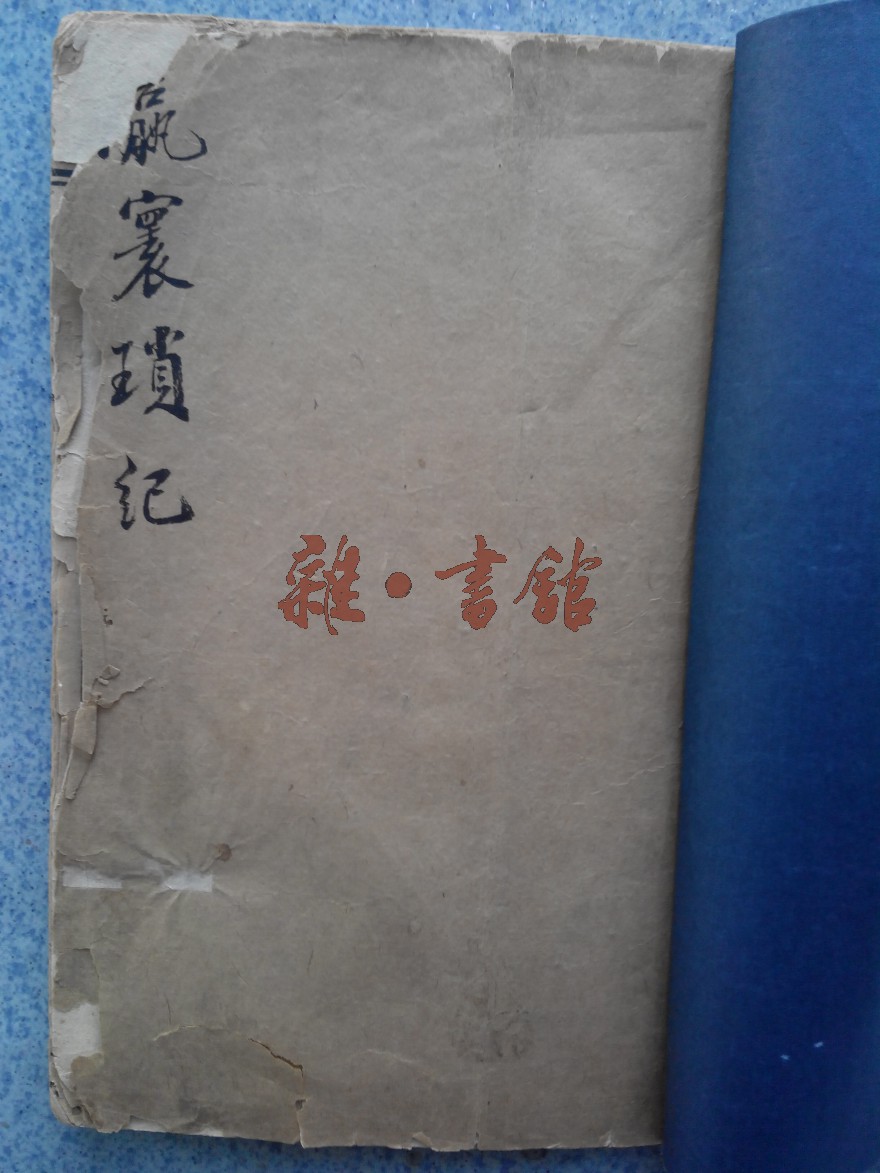 瀛寰瑣記
雜·書館